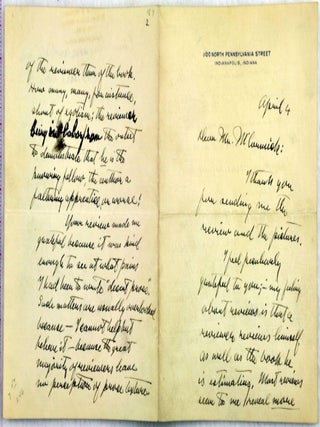 1100 NORTH PENNSYLVANIA STREET
INDIANAPOLIS, INDIANA
April 4
Dear Mr. McCormick:
I thank you
for sending me the
review and the pictures.
I feel peculiarly
grateful to you; — my feeling
about reviews is that a
reviewer reviews himself
as well as the book he
is estimating. Most reviews
seem to me reveal more
2
of the reviewer than of the book.
Some many, many, for instance,
shout of egotism; the reviewer
being in labor from the outset
to demonstrate that he is the
knowing fellow, the author a
faltering apprentice, or worse!
Your review made me
grateful because it was kind
enough to see at what pains
I had been to write "decent prose."
Such matters are usually overlooked
because — I cannot help but
believe it — because the great
majority of reviewers have
no perception of prose